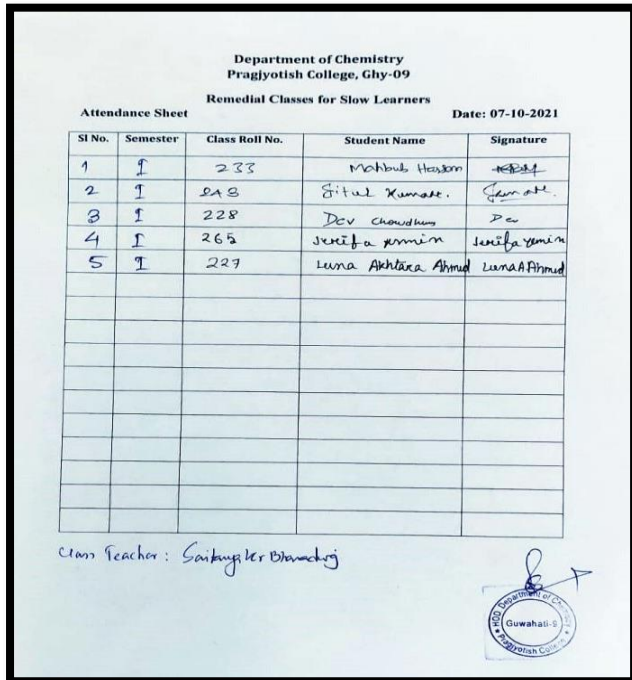 Department of Chemistry
Pragjyotish College, Ghy-09
Remedial Classes for Slow Learners
Attendance Sheet Date: 07-10-2021
Sl No. Semester Class Roll No. Student Name Signature
1 I 233 Mahbub
2 I Kumar.
3 I 228 Dev Chowdhury Dev
4 I 265 Jerifa yesmin Jerifa yemin
5 I 227 Leena Akhtara Ahmed LeenaAAhmed
Class Teacher:
HOD, Department of Chemistry
Guwahati-9
Pragjyotish College